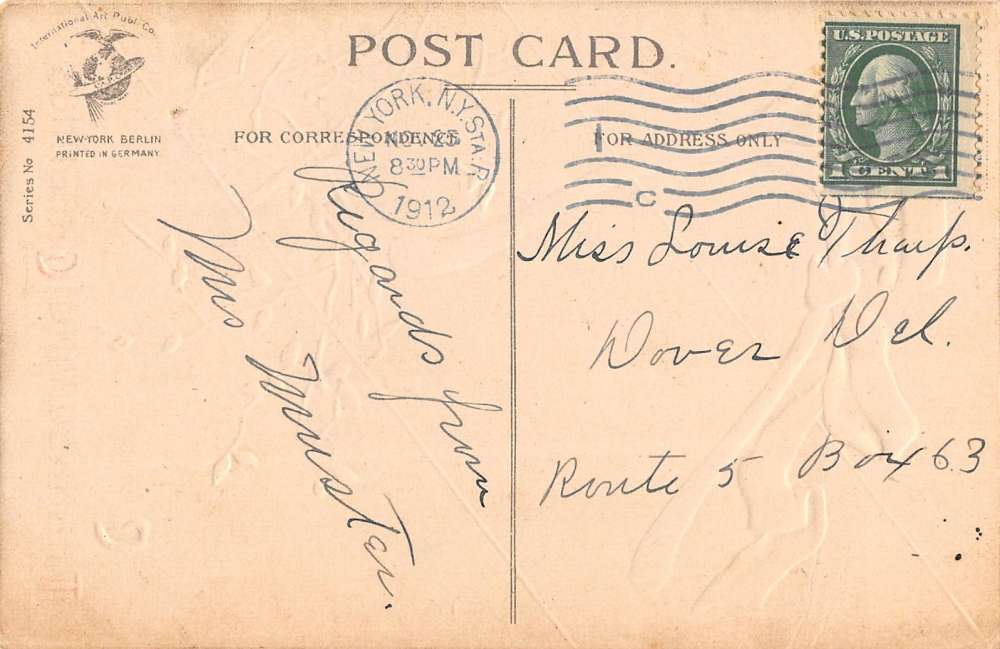 International Art Publ. Co.
NEW-YORK BERLIN
PRINTED IN GERMANY
Series No 4154
POST CARD.
U.S. POSTAGE
1 CENT 1
NEW YORK, N.Y. STA. R
NOV 25
8 30 PM
1912
C
FOR CORRESPONDENCE
FOR ADDRESS ONLY
Regards from
Mrs Muster.
Miss Louise Tharp.
Dover Del.
Route 5 Box 63